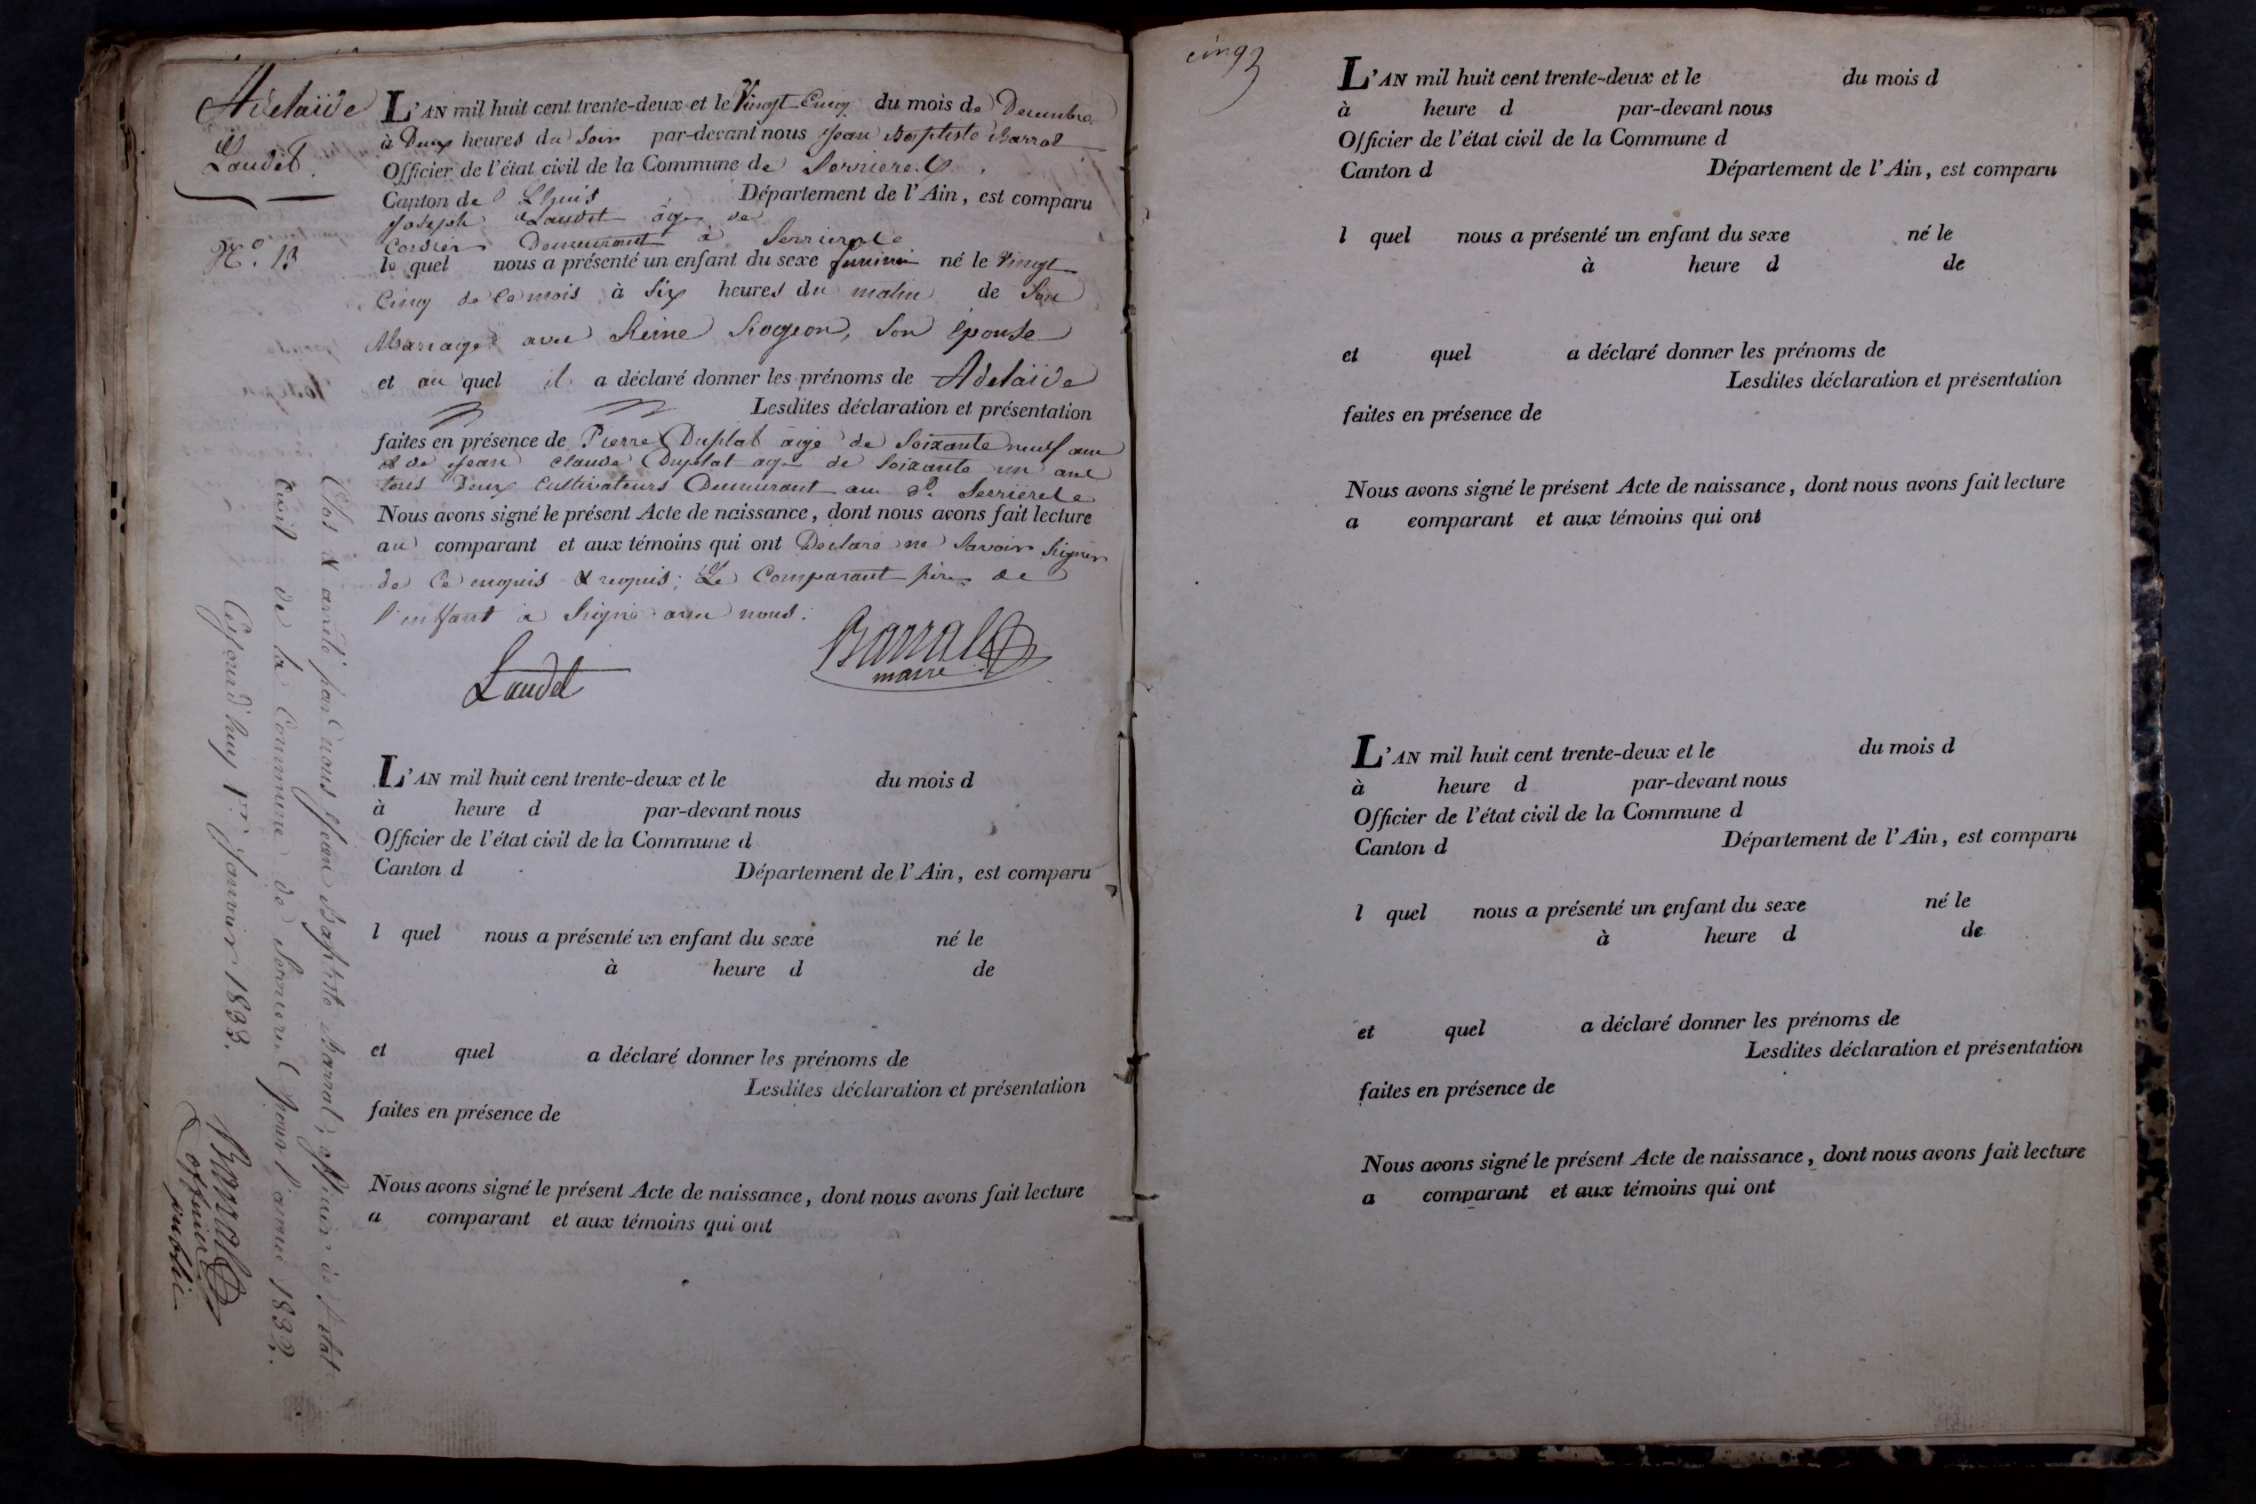 Adelaïde
Laudet.
N.º 13
L'AN mil huit cent trente-deux et le Vingt Cinq du mois de Decembre
à Deux heures du Soir par-devant nous Jean Baptiste Barral
Officier de l'état civil de la Commune de Serrieres
Canton de Lhuis Département de l'Ain, est comparu
Joseph Laudet âgé de
Cordier Demeurant à Serrieres
le quel nous a présenté un enfant du sexe feminin né le Vingt
Cinq de Ce mois à Six heures du matin de Son
Mariage avec Reine Rogeon, Son épouse
et au quel il a déclaré donner les prénoms de Adelaïde
Lesdites déclaration et présentation
faites en présence de Pierre Duplat âgé de Soixante neuf ans
et de Jean Claude Duplat agé de Soixante un ans
tous Deux Cultivateurs Demeurant au dº. Serrieres
Nous avons signé le présent Acte de naissance, dont nous avons fait lecture
au comparant et aux témoins qui ont Declaré ne Savoir Signer
de Ce enquis & requis; Le Comparant père de
l'enfant a Signé avec nous.
Laudet
Barral
maire
Clos & arrêté par nous Jean Baptiste Barral, officier de l'état
Civil de la Commune de Serrieres pour l'année 1832.
Cejourd'huy 1er Janvier 1833.
Barral
officier
public
L'AN mil huit cent trente-deux et le du mois d
à heure d par-devant nous
Officier de l'état civil de la Commune d
Canton d Département de l'Ain, est comparu
l quel nous a présenté un enfant du sexe né le
à heure d de
et quel a déclaré donner les prénoms de
Lesdites déclaration et présentation
faites en présence de
Nous avons signé le présent Acte de naissance, dont nous avons fait lecture
a comparant et aux témoins qui ont
cinq
L'AN mil huit cent trente-deux et le du mois d
à heure d par-devant nous
Officier de l'état civil de la Commune d
Canton d Département de l'Ain, est comparu
l quel nous a présenté un enfant du sexe né le
à heure d de
et quel a déclaré donner les prénoms de
Lesdites déclaration et présentation
faites en présence de
Nous avons signé le présent Acte de naissance, dont nous avons fait lecture
a comparant et aux témoins qui ont
L'AN mil huit cent trente-deux et le du mois d
à heure d par-devant nous
Officier de l'état civil de la Commune d
Canton d Département de l'Ain, est comparu
l quel nous a présenté un enfant du sexe né le
à heure d de
et quel a déclaré donner les prénoms de
Lesdites déclaration et présentation
faites en présence de
Nous avons signé le présent Acte de naissance, dont nous avons fait lecture
a comparant et aux témoins qui ont